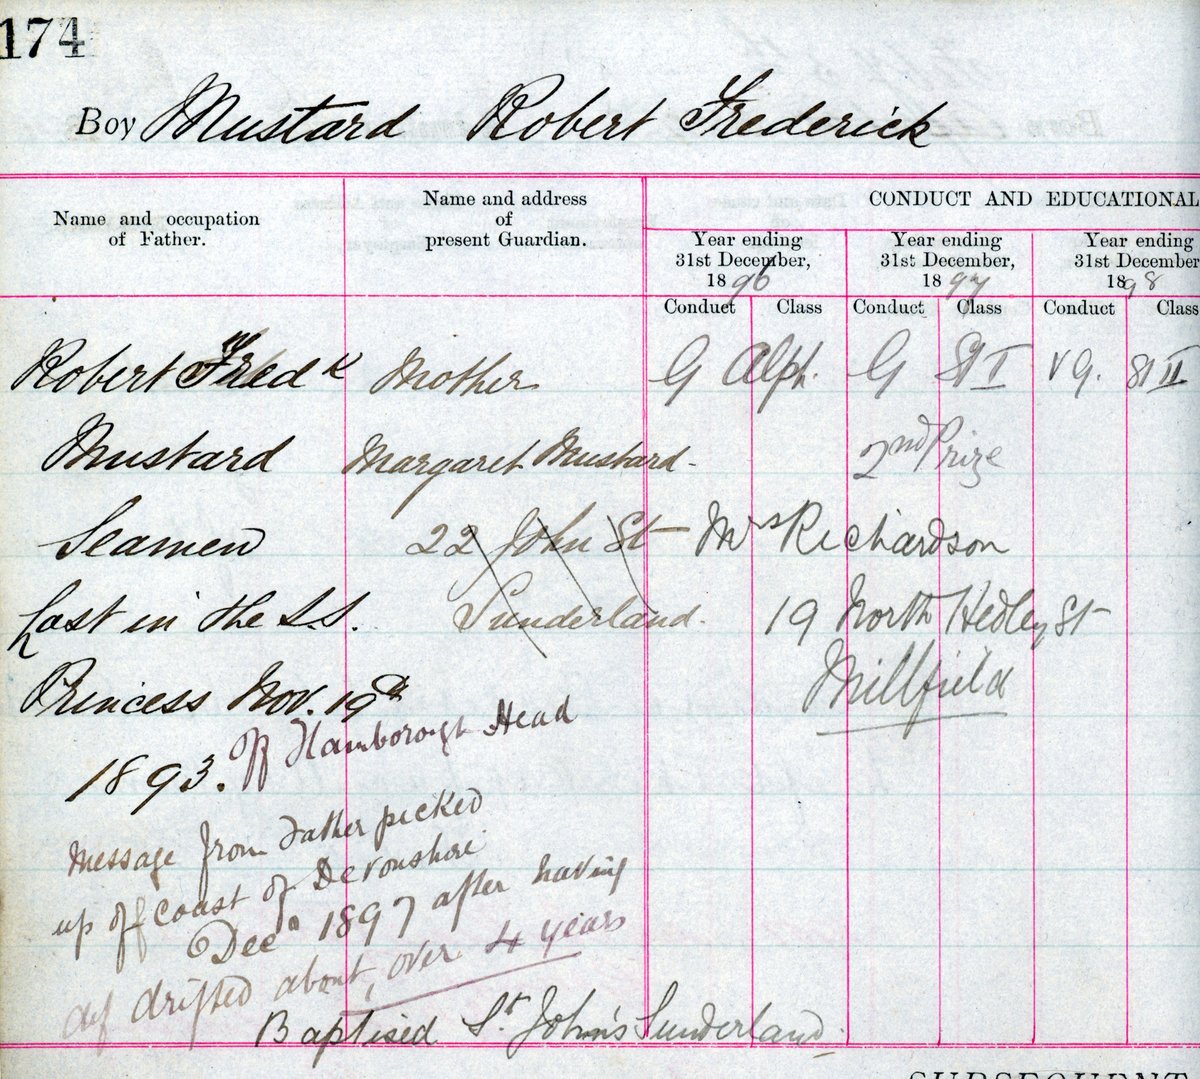 174
Boy Mustard Robert Frederick
Name and occupation
of Father.
Name and address
of
present Guardian.
CONDUCT AND EDUCATIONAL
Year ending
31st December,
1896
Year ending
31st December,
1897
Year ending
31st December
1898
Conduct Class Conduct Class Conduct Class
Robert Fredk Mother G Alph. G St I VG. St II
Mustard Margaret Mustard - 2nd Prize
Seamen 22 John St Mrs Richardson
Lost in the S.S. Sunderland. 19 North Hedley St
Princess Nov. 19th Millfield
1893. Off Flamborough Head
Message from Father picked
up off coast of Devonshire
Dec 1897 after having
drifted about, over 4 years
Baptised St. John's Sunderland